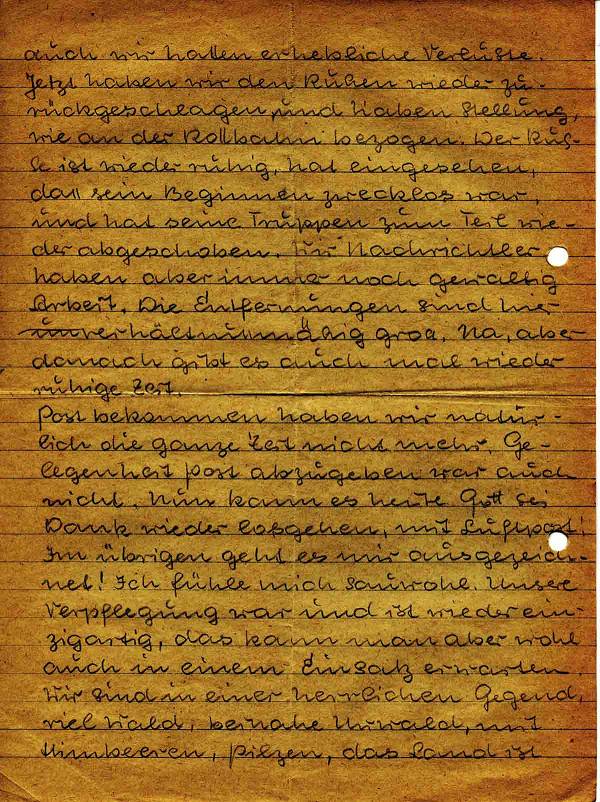 auch wir hatten erhebliche Verluste.
Jetzt haben wir den Rußen wieder zu-
rückgeschlagen und haben Stellung,
wie an der Rollbahn bezogen. Der Ruß-
e ist wieder ruhig, hat eingesehen,
daß sein Beginnen zwecklos war,
und hat seine Truppen zum Teil wie-
der abgeschoben. Wir Nachrichtler
haben aber immer noch gewaltig
Arbeit. Die Entfernungen sind hier
unverhältnismäßig groß. Na, aber
danach gibt es auch mal wieder
ruhige Zeit.
Post bekommen haben wir natür-
lich die ganze Zeit nicht mehr. Ge-
legenheit Post abzugeben war auch
nicht. Nun kann es heute Gott sei
Dank wieder losgehen, mit Luftpost!
Im übrigen geht es mir ausgezeich-
net! Ich fühle mich sauwohl. Unsere
Verpflegung war und ist wieder ein-
zigartig, das kann man aber wohl
auch in einem Einsatz erwarten.
Wir sind in einer herrlichen Gegend,
viel Wald, beinahe Urwald, mit
Himbeeren, Pilzen, das Land ist